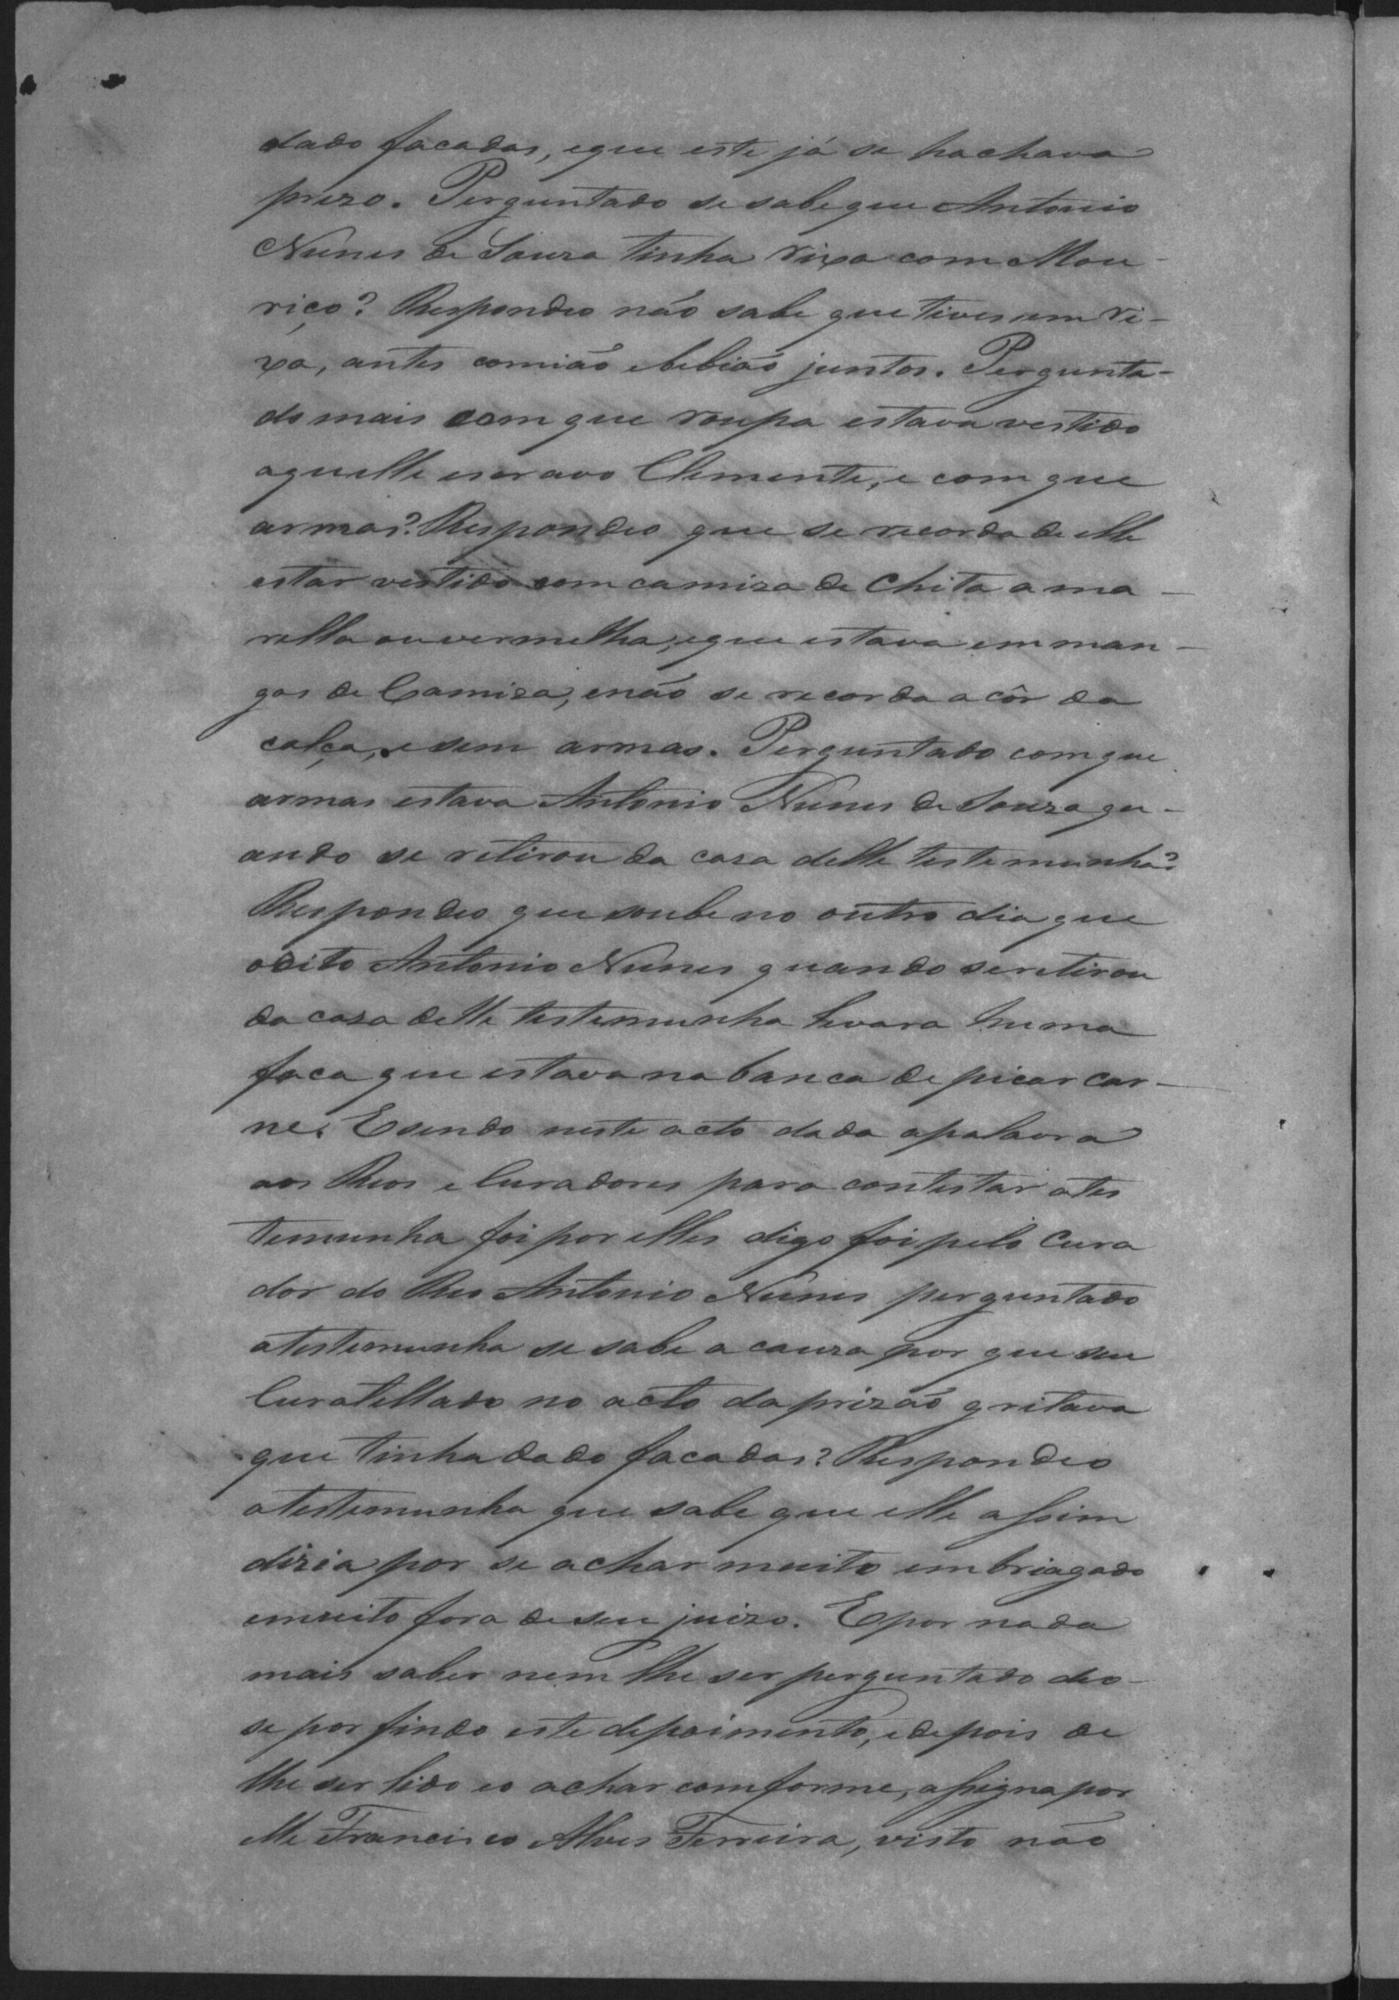 dado facadas, eque este já se hachava
prezo. Perguntado se sabe que Antonio
Nunes de Souza tinha rixa com Mau-
riço? Respondeo não sabe que tivessem ri-
xa, antes comião ebebião juntos. Pergunta-
do mais com que roupa estava vestido
aquelle escravo Clemente, e com que
armas? Respondeo que se recorda de elle
estar vestido com camiza de Chita ama-
rella ou vermelha, eque estava em man-
gas de Camiza, enão se recorda a côr da
calça, e sem armas. Perguntado com que
armas estava Antonio Nunes de Souza qu-
ando se retirou da caza delle testemunha?
Respondeo que soube no outro dia que
odito Antonio Nunes quando se retirou
da caza delle testemunha levara huma
faca que estava na banca de picar car-
ne. E sendo neste acto dada apalavra
aos Reos e Curadores para contestar ates
temunha foi por elles digo foi pelo Cura
dor do Reo Antonio Nunes perguntado
atestemunha se sabe a cauza por que seu
Curatellado no acto daprizão gritava
que tinha dado facadas? Respondeo
atestemunha que sabe que elle assim
dizia por se achar muito embriagado
emuito fora de seu juizo. E por nada
mais saber nem lhe ser perguntado deo-
se por findo este depoimento, e depois de
lhe ser lido eo achar comforme, assigna por
elle Francisco Alves Ferreira, visto não